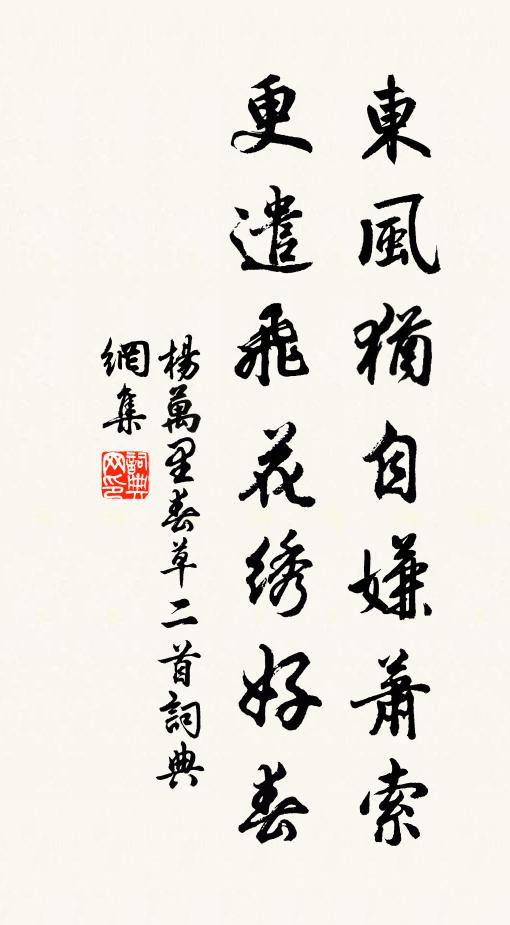 東風猶自嫌蕭索
更遣飛花綉好春
楊萬里春草二首詞典
網集
詞典
网印